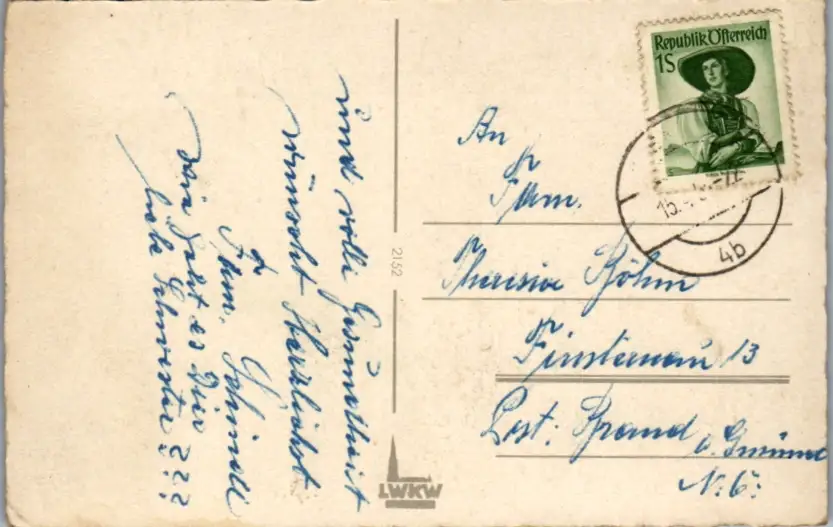 und volle Gesundheit
wünscht Herzlichst
Fam. Schindl
wie geht es Dir
liebe Schwester ???
2152
LWKW
Republik Österreich
1S
15.
4b
An
Fam.
Theresia Böhm
Finsternau 13
Post: Brand b. Gmünd
N.Ö.